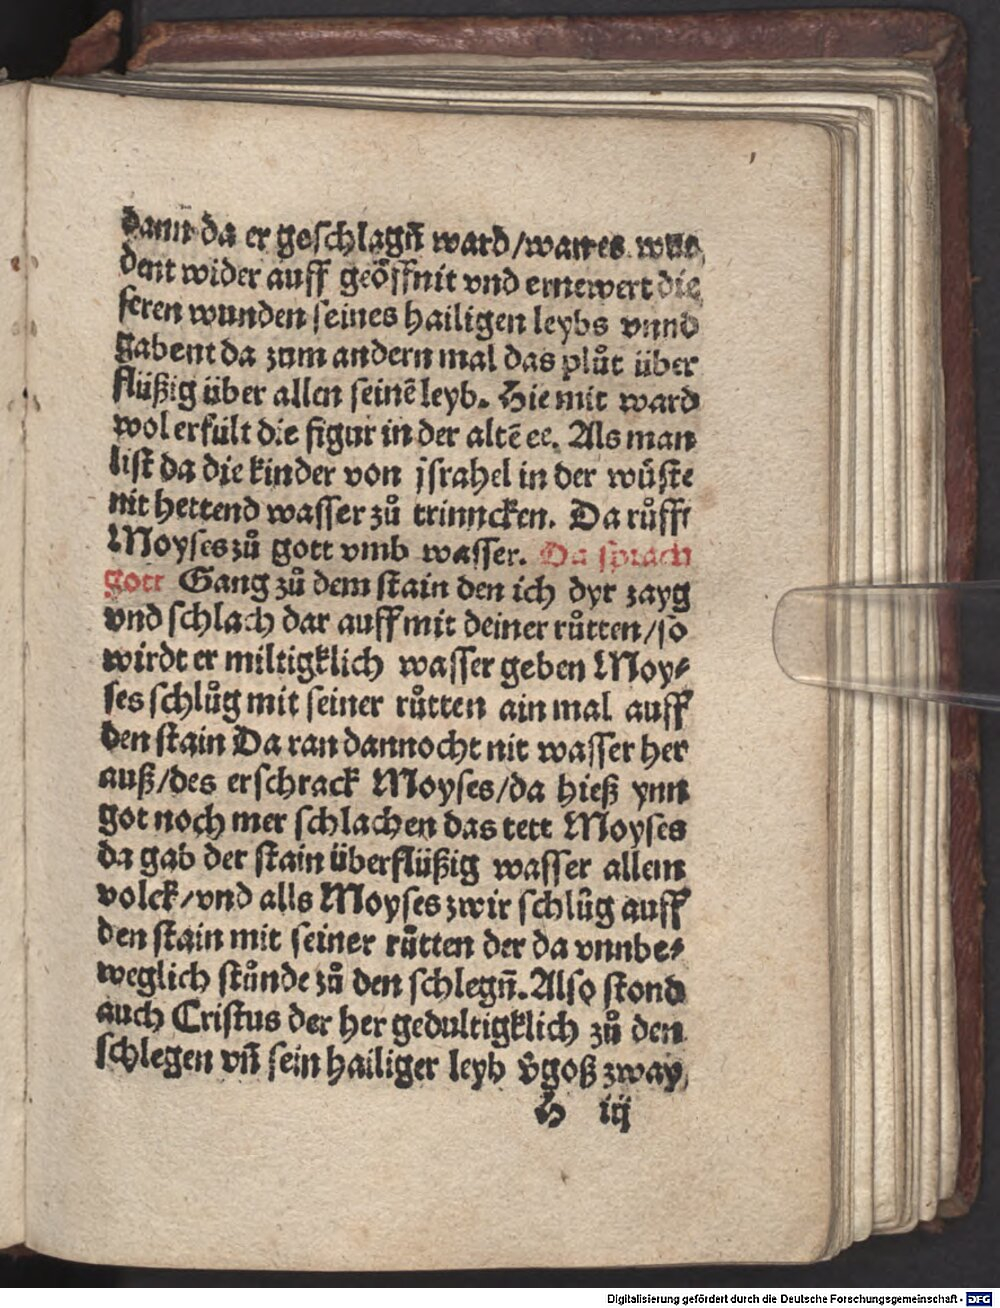 dann da er geschlagn̄ ward/wann es wur
dent wider auff geöffnit vnd ernewert die
seren wunden seines hailigen leybs vnnd
gabent da zum andern mal das plůt über
flüßig über allen seinē leyb. Hie mit ward
wol erfült die figur in der altē ee. Als man
list da die kinder von jsrahel in der wůste
nit hettend wasser zů trinncken. Da růfft
Moyses zů gott vmb wasser. Da sprach
gott Gang zů dem stain den ich dyr zayg
vnd schlach dar auff mit deiner růtten/so
wirdt er miltigklich wasser geben Moy⸗
ses schlůg mit seiner růtten ain mal auff
den stain Da ran dannocht nit wasser her
auß/des erschrack Moyses/da hieß ynn
got noch mer schlachen das tett Moyses
da gab der stain überflüßig wasser allem
volck/vnd alls Moyses zwir schlůg auff
den stain mit seiner růtten der da vnnbe⸗
weglich stůnde zů den schlegn̄. Also stond
auch Cristus der her gedultigklich zů den
schlegen vn̄ sein hailiger leyb v̊goß zway
H iij
Digitalisierung gefördert durch die Deutsche Forschungsgemeinschaft - DFG